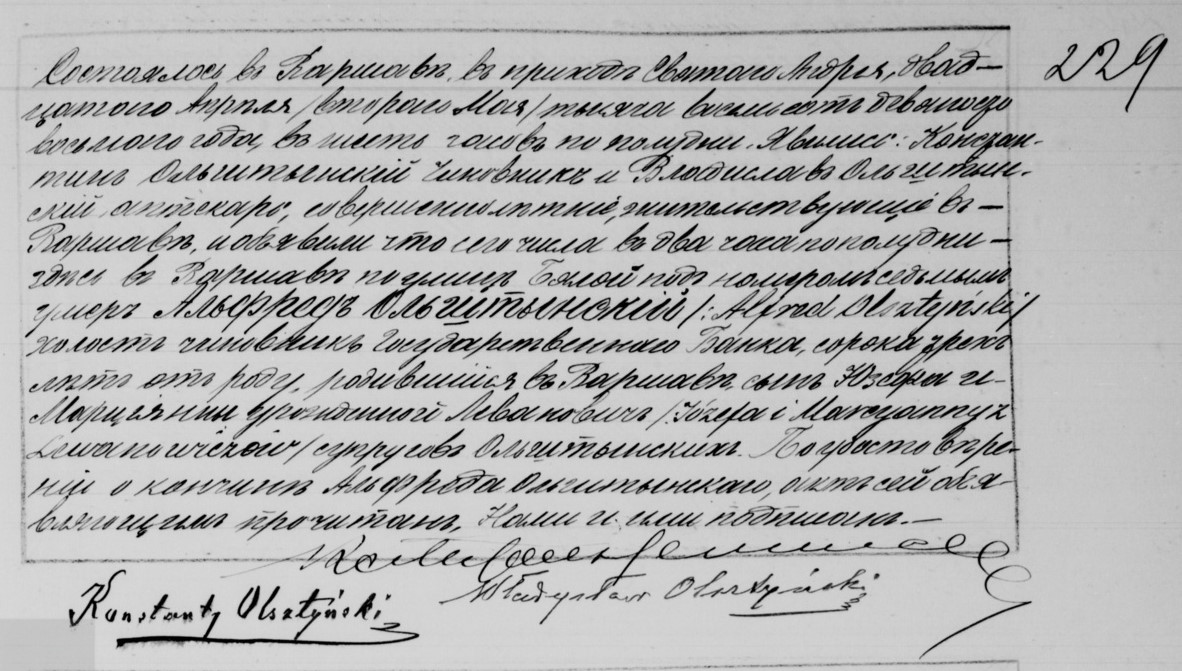 229
Состоялось въ Варшавѣ, въ приходѣ Святого Андрея, двад-
цатого Апрѣля /второго Мая/ тысяча восемьсотъ девяносто
восьмого года, въ шесть часовъ по полудни. Явились: Констан-
тинъ Ольштынскій Чиновникъ и Владиславъ Ольштын-
скій аптекарь, совершеннолѣтніе, жительствующіе въ
Варшавѣ, и объявили что сего числа въ два часа по полудни
здѣсь въ Варшавѣ по улицѣ Бѣлой подъ номеромъ седьмымъ
умеръ Альфредъ Ольштынскій /: Alfred Olsztyński/
холостъ чиновникъ Государственнаго Банка, сорока трехъ
лѣтъ отъ роду, родившійся въ Варшавѣ, сынъ Юзефа и
Марціянны урожденной Левановичъ /: Józefa i Marcyanny z
Lewanowiczów/ супруговъ Ольштынскихъ. По удостовѣре-
ніи о кончинѣ Альфреда Ольштынскаго, актъ сей объя-
вляющимъ прочитанъ, Нами и ими подписанъ.
Konstanty Olsztyński
Władysław Olsztyński